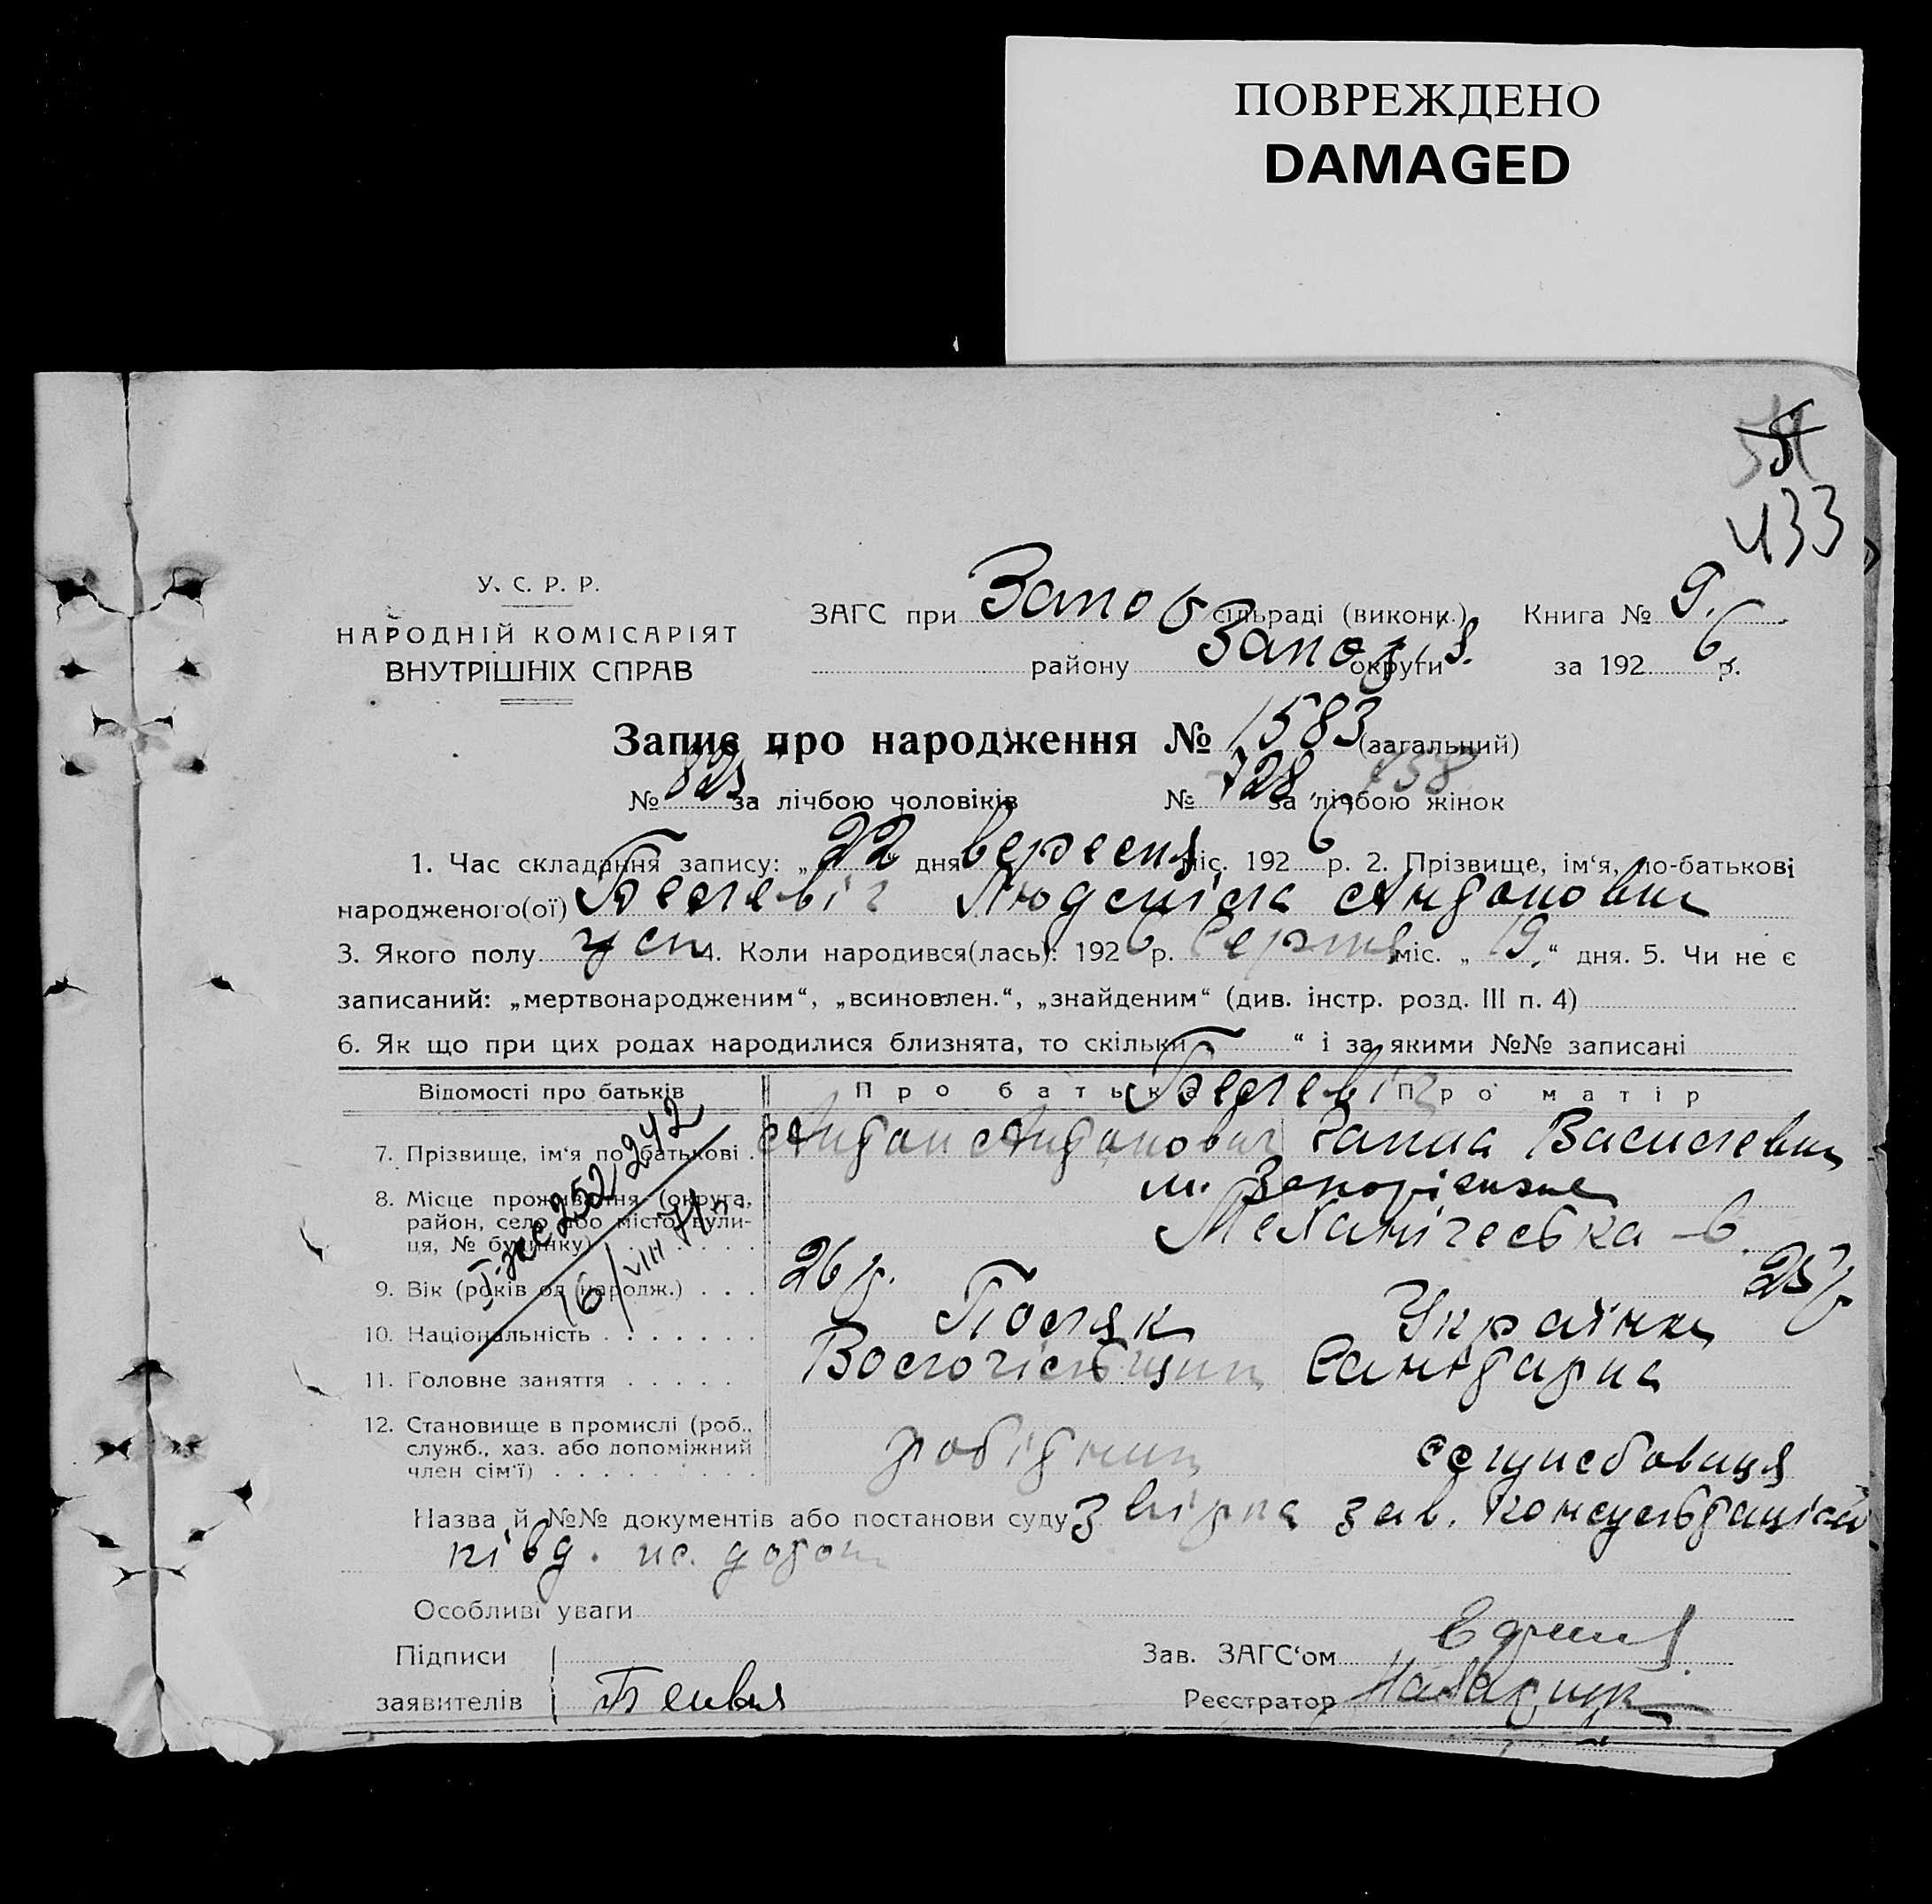 ПОВРЕЖДЕНО
DAMAGED
433
У. С. Р. Р.
НАРОДНІЙ КОМІСАРІЯТ
ВНУТРІШНІХ СПРАВ
ЗАГС при Запоо сільраді (виконк.) Книга № 9.
району Запоз округи за 192 6 р.
Запис про народження № 1583 (загальний)
№ 825 за лічбою чоловіків № 728 758 за лічбою жінок
1. Час складання запису: „ 22 дня вересня міс. 192 6 р. 2. Прізвище, ім‘я, по-батькові
народженого(ої) Людміла Антоновна
3. Якого полу жен 4. Коли народився(лась): 192 6 р. Серпня міс. „ 19 “ дня. 5. Чи не є
записаний: „мертвонародженим“, „всиновлен.“, „знайденим“ (див. інстр. розд. III п. 4)
6. Як що при цих родах народилися близнята, то скільки “ і за якими №№ записані
Відомості про батьків Про батька Про матір
7. Прізвище, ім‘я по батькові . Антон Антонович Ганна Василевна
8. Місце проживання (округа, м. Запоріжже
район, село або місто, вули- Механічеська 6
ця, № будинку)
9. Вік (років од народж.) . . . 26 р. 25 р
10. Національність . . . . . . . Поляк Українка
11. Головне заняття . . . . . Санитарка
12. Становище в промислі (роб.,
служб., хаз. або допоміжний робітник
член сім‘ї) . . . . . . . . .
252 242
16/VIII
Назва й №№ документів або постанови суду зав. консультацією
Особливі уваги
Підписи Зав. ЗАГС‘ом
заявителів Реєстратор